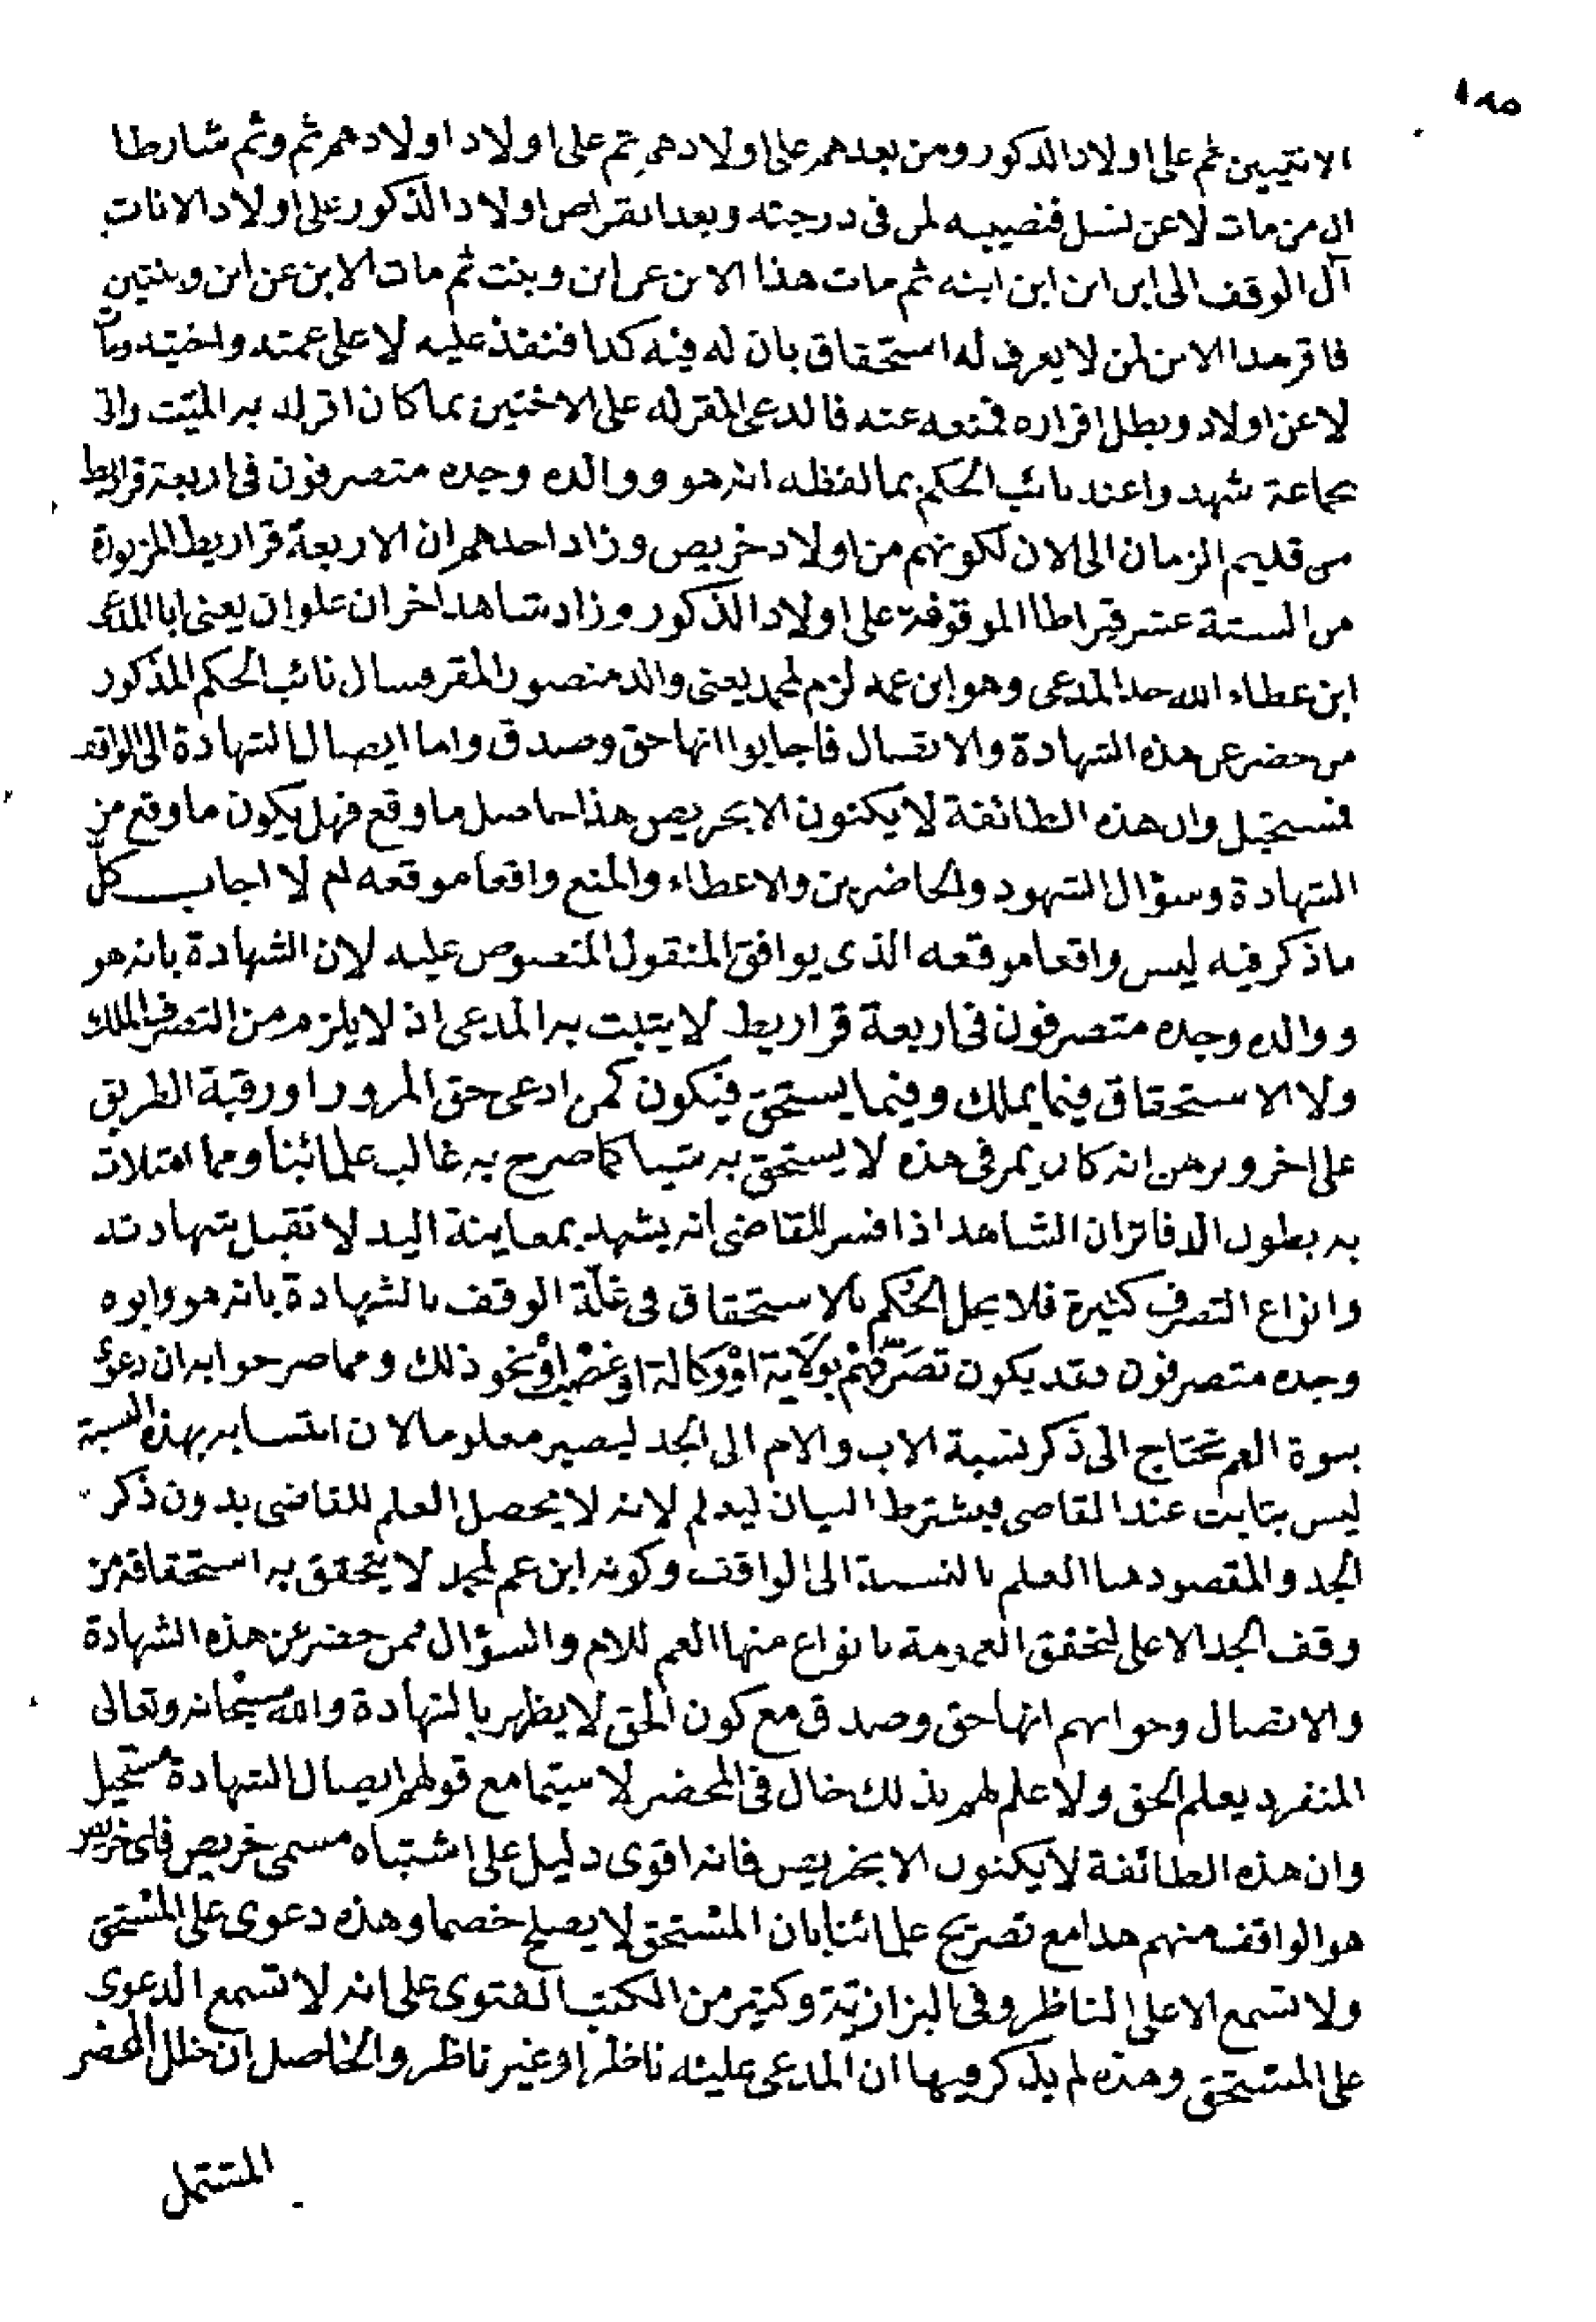 ١٨٥
الانثيين ثم على اولاد الذكور ومن بعدهم على اولادهم ثم على اولاد اولادهم ثم وثم شارطا
ان من مات لا عن نسل فنصيبه لمن فى درجته وبعد انقراض اولاد الذكور على اولاد الاناث
آل الوقف الى ابن ابن ابن ابنه ثم مات هذا الابن عن ابن وبنت ثم مات الابن عن ابن وبنتين
فاقر هذا الابن لمن لا يعرف له استحقاق بان له فيه كذا فنفذ عليه لا على عمته واختيه ومات
لا عن اولاد وبطل اقراره فمنعه عنه فادعى المقر له على الاختين بما كان اقر له به الميت واتى
بجماعة شهدوا عند نائب الحكم بما لفظه انه هو ووالده وجده متصرفون فى اربعة قراريط
من قديم الزمان الى الان لكونهم من اولاد خريص وزاد احدهم ان الاربعة قراريط المزبورة
من الستة عشر قيراطا الموقوفة على اولاد الذكور وزاد شاهد اخر ان علوان يعنى ابا المدعى
ابن عطاء الله جد المدعى وهو ابن عمه لزم لمحمد يعنى والد منصور المقر وسال نائب الحكم المذكور
من حضر عن هذه الشهادة والاتصال فاجابوا انها حق وصدق واما ايصال الشهادة الى الواقف
فمستحيل وان هذه الطائفة لا يكنون الا بخريص هذا حاصل ما وقع فهل يكون ما وقع من
الشهادة وسؤال الشهود والحاضرين والاعطاء والمنع واقعا موقعه ام لا اجاب كل
ما ذكر فيه ليس واقعا موقعه الذى يوافق المنقول المنصوص عليه لان الشهادة بانه هو
ووالده وجده متصرفون فى اربعة قراريط لا يثبت به المدعى اذ لا يلزم من التصرف الملك
ولا الاستحقاق فيما يملك وفيما يستحق فيكون كمن ادعى حق المرور او رقبة الطريق
على اخر وبرهن انه كان يمر فى هذه لا يستحق به شيا كما صرح به غالب علمائنا ومما امتلات
به بطون الدفاتر ان الشاهد اذا فسر للقاضى انه يشهد بمعاينة اليد لا تقبل شهادته
وانواع التصرف كثيرة فلا يحل الحكم بالاستحقاق فى غلة الوقف بالشهادة بانه هو وابوه
وجده متصرفون فقد يكون تصرفهم بولاية او وكالة او غصب او نحو ذلك ومما صرحوا به ان دعوى
بنوة العم تحتاج الى ذكر نسبة الاب والام الى الجد ليصير معلوما لان انتسابه بهذه النسبة
ليس بثابت عند القاضى فيشترط البيان ليعلم لانه لا يحصل العلم للقاضى بدون ذكر
الجد والمقصود هنا العلم بالنسبة الى الواقف وكونه ابن عم لمحمد لا يتحقق به استحقاقه من
وقف الجد الاعلى لتحقق العمومة بانواع منها العم للام والسؤال ممن حضر عن هذه الشهادة
والاتصال وجوابهم انها حق وصدق مع كون الحق لا يظهر بالشهادة والله سبحانه وتعالى
المنفرد يعلم الحق ولا علم لهم بذلك خال فى المحضر لا سيما مع قولهم ايصال الشهادة مستحيل
وان هذه الطائفة لا يكنون الا بخريص فانه اقوى دليل على اشتباه مسمى خريص فاى خريص
هو الواقف منهم هذا مع تصريح علمائنا بان المستحق لا يصلح خصما وهذه دعوى على المستحق
ولا تسمع الا على الناظر وفى البزازية وكثير من الكتب الفتوى على انه لا تسمع الدعوى
على المستحق وهذه لم يذكر فيها ان المدعى عليه ناظر او غير ناظر والحاصل ان خلل المحضر
المشتمل